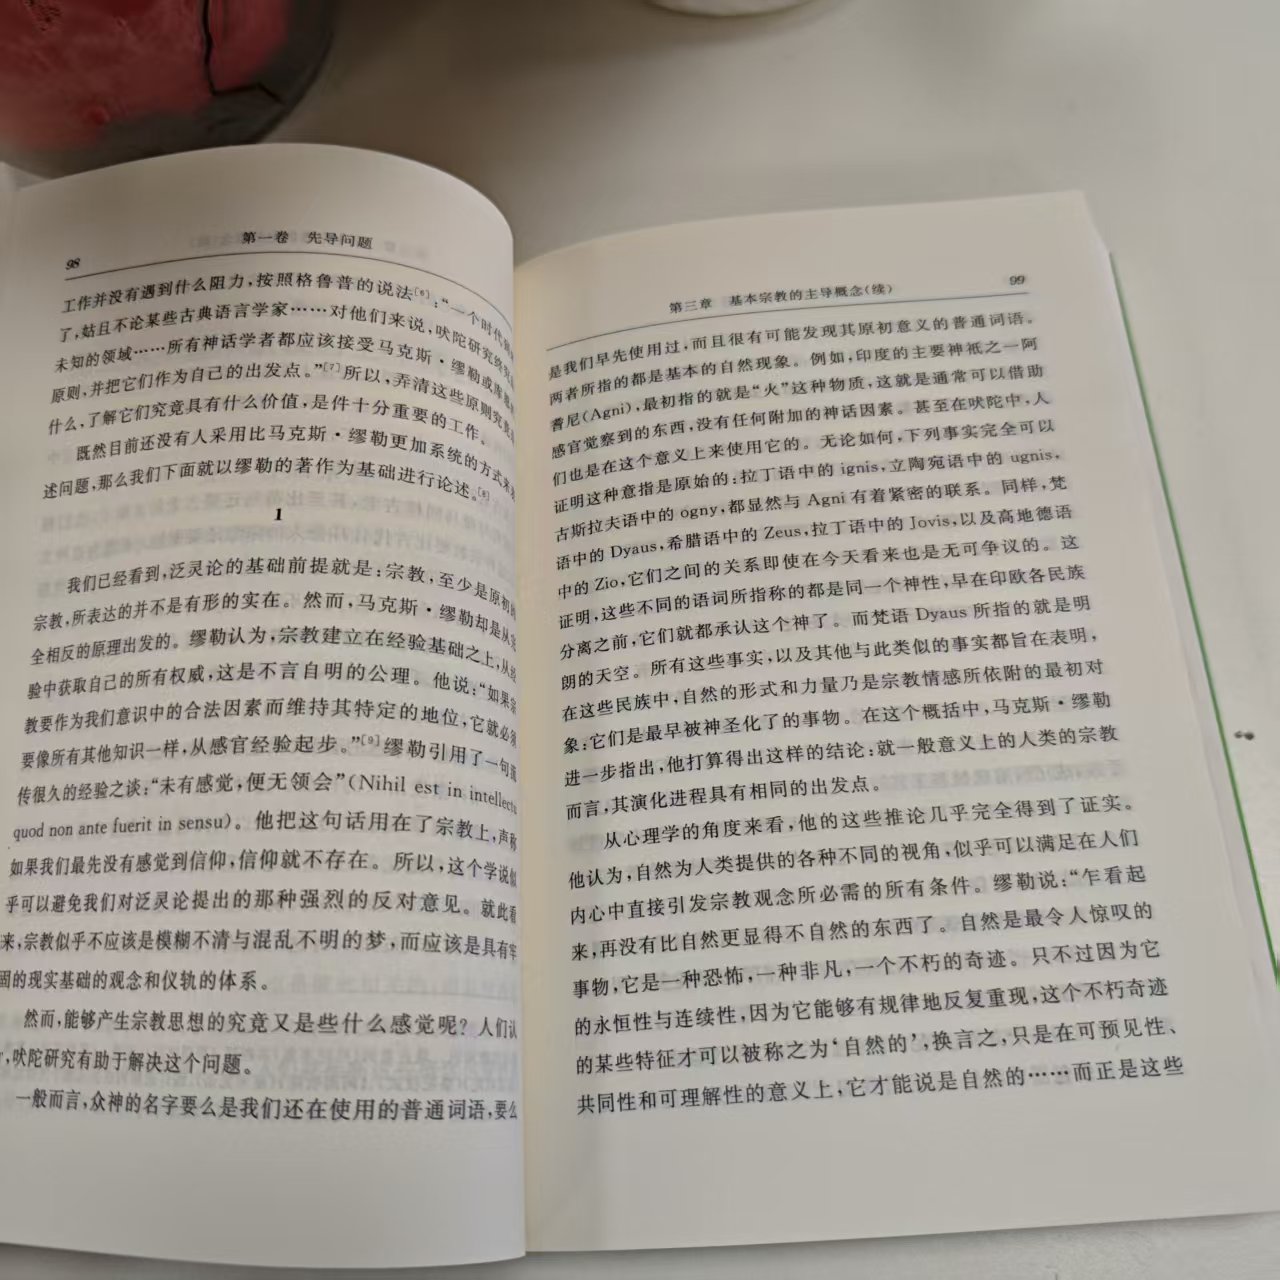 98
第一卷　先导问题
工作并没有遇到什么阻力,按照格鲁普的说法[6]:“一个时代
了,姑且不论某些古典语言学家……对他们来说,吠陀研究终究
未知的领域……所有神话学者都应该接受马克斯·缪勒或库恩
原则,并把它们作为自己的出发点。”[7]所以,弄清这些原则究竟
什么,了解它们究竟具有什么价值,是件十分重要的工作。
既然目前还没有人采用比马克斯·缪勒更加系统的方式来
述问题,那么我们下面就以缪勒的著作为基础进行论述。[8]
1
我们已经看到,泛灵论的基础前提就是:宗教,至少是原初
宗教,所表达的并不是有形的实在。然而,马克斯·缪勒却是从
全相反的原理出发的。缪勒认为,宗教建立在经验基础之上,从
验中获取自己的所有权威,这是不言自明的公理。他说:“如果宗
教要作为我们意识中的合法因素而维持其特定的地位,它就必须
要像所有其他知识一样,从感官经验起步。”[9]缪勒引用了一句流
传很久的经验之谈:“未有感觉,便无领会”(Nihil est in intellectu
quod non ante fuerit in sensu)。他把这句话用在了宗教上,声称
如果我们最先没有感觉到信仰,信仰就不存在。所以,这个学说似
乎可以避免我们对泛灵论提出的那种强烈的反对意见。就此看
来,宗教似乎不应该是模糊不清与混乱不明的梦,而应该是具有牢
固的现实基础的观念和仪轨的体系。
然而,能够产生宗教思想的究竟又是些什么感觉呢？人们认
,吠陀研究有助于解决这个问题。
一般而言,众神的名字要么是我们还在使用的普通词语,要么
第三章　基本宗教的主导概念(续)
99
是我们早先使用过,而且很有可能发现其原初意义的普通词语。
两者所指的都是基本的自然现象。例如,印度的主要神祇之一阿
耆尼(Agni),最初指的就是“火”这种物质,这就是通常可以借助
感官觉察到的东西,没有任何附加的神话因素。甚至在吠陀中,人
们也是在这个意义上来使用它的。无论如何,下列事实完全可以
证明这种意指是原始的:拉丁语中的 ignis,立陶宛语中的 ugnis,
古斯拉夫语中的 ogny,都显然与 Agni 有着紧密的联系。同样,梵
语中的 Dyaus,希腊语中的 Zeus,拉丁语中的 Jovis,以及高地德语
中的 Zio,它们之间的关系即使在今天看来也是无可争议的。这
证明,这些不同的语词所指称的都是同一个神性,早在印欧各民族
分离之前,它们就都承认这个神了。而梵语 Dyaus 所指的就是明
朗的天空。所有这些事实,以及其他与此类似的事实都旨在表明,
在这些民族中,自然的形式和力量乃是宗教情感所依附的最初对
象:它们是最早被神圣化了的事物。在这个概括中,马克斯·缪勒
进一步指出,他打算得出这样的结论:就一般意义上的人类的宗教
而言,其演化进程具有相同的出发点。
从心理学的角度来看,他的这些推论几乎完全得到了证实。
他认为,自然为人类提供的各种不同的视角,似乎可以满足在人们
内心中直接引发宗教观念所必需的所有条件。缪勒说:“乍看起
来,再没有比自然更显得不自然的东西了。自然是最令人惊叹的
事物,它是一种恐怖,一种非凡,一个不朽的奇迹。只不过因为它
的永恒性与连续性,因为它能够有规律地反复重现,这个不朽奇迹
的某些特征才可以被称之为‘自然的’,换言之,只是在可预见性、
共同性和可理解性的意义上,它才能说是自然的……而正是这些